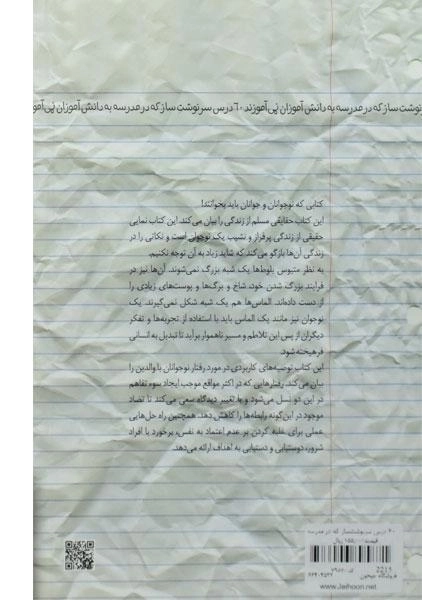 نوشت ساز که در مدرسه به دانش آموزان نمی‌آموزند ۶۰ درس سرنوشت ساز که در مدرسه به دانش آموزان نمی‌آمو
کتابی که نوجوانان و جوانان باید بخوانند!
این کتاب حقایقی مسلم از زندگی را بیان می‌کند. این کتاب نمایی
حقیقی از زندگی پرفراز و نشیب یک نوجوان است و نکاتی را در
زندگی آن‌ها بازگو می‌کند که شاید زیاد به آن توجه نکنیم.
به نظر متیوس بلوط‌ها یک شبه بزرگ نمی‌شوند. آن‌ها نیز در
فرایند بزرگ شدن خود، شاخ و برگ‌ها و پوست‌های زیادی را
از دست داده‌اند. الماس‌ها هم یک شبه شکل نمی‌گیرند. یک
نوجوان نیز مانند یک الماس باید با استفاده از تجربه‌ها و تفکر
دیگران از پس این تلاطم و مسیر ناهموار برآید تا تبدیل به انسانی
فرهیخته شود.
این کتاب توصیه‌های کاربردی در مورد رفتار نوجوانان با والدین را
بیان می‌کند. رفتارهایی که در اکثر مواقع موجب ایجاد سوء تفاهم
در این دو نسل می‌شود و با تغییر دیدگاه سعی می‌کند تا تضاد
موجود در این‌گونه رابطه‌ها را کاهش دهد. همچنین راه حل‌هایی
عملی برای غلبه کردن بر عدم اعتماد به نفس، برخورد با افراد
شرور، دوستیابی و دستیابی به اهداف ارائه می‌دهد.
۶۰ درس سرنوشتساز که در مدرسه
قیمت: ۱۵۵,۰۰۰ ریال
2211
فروشگاه جیحون
www.Jeihoon.net